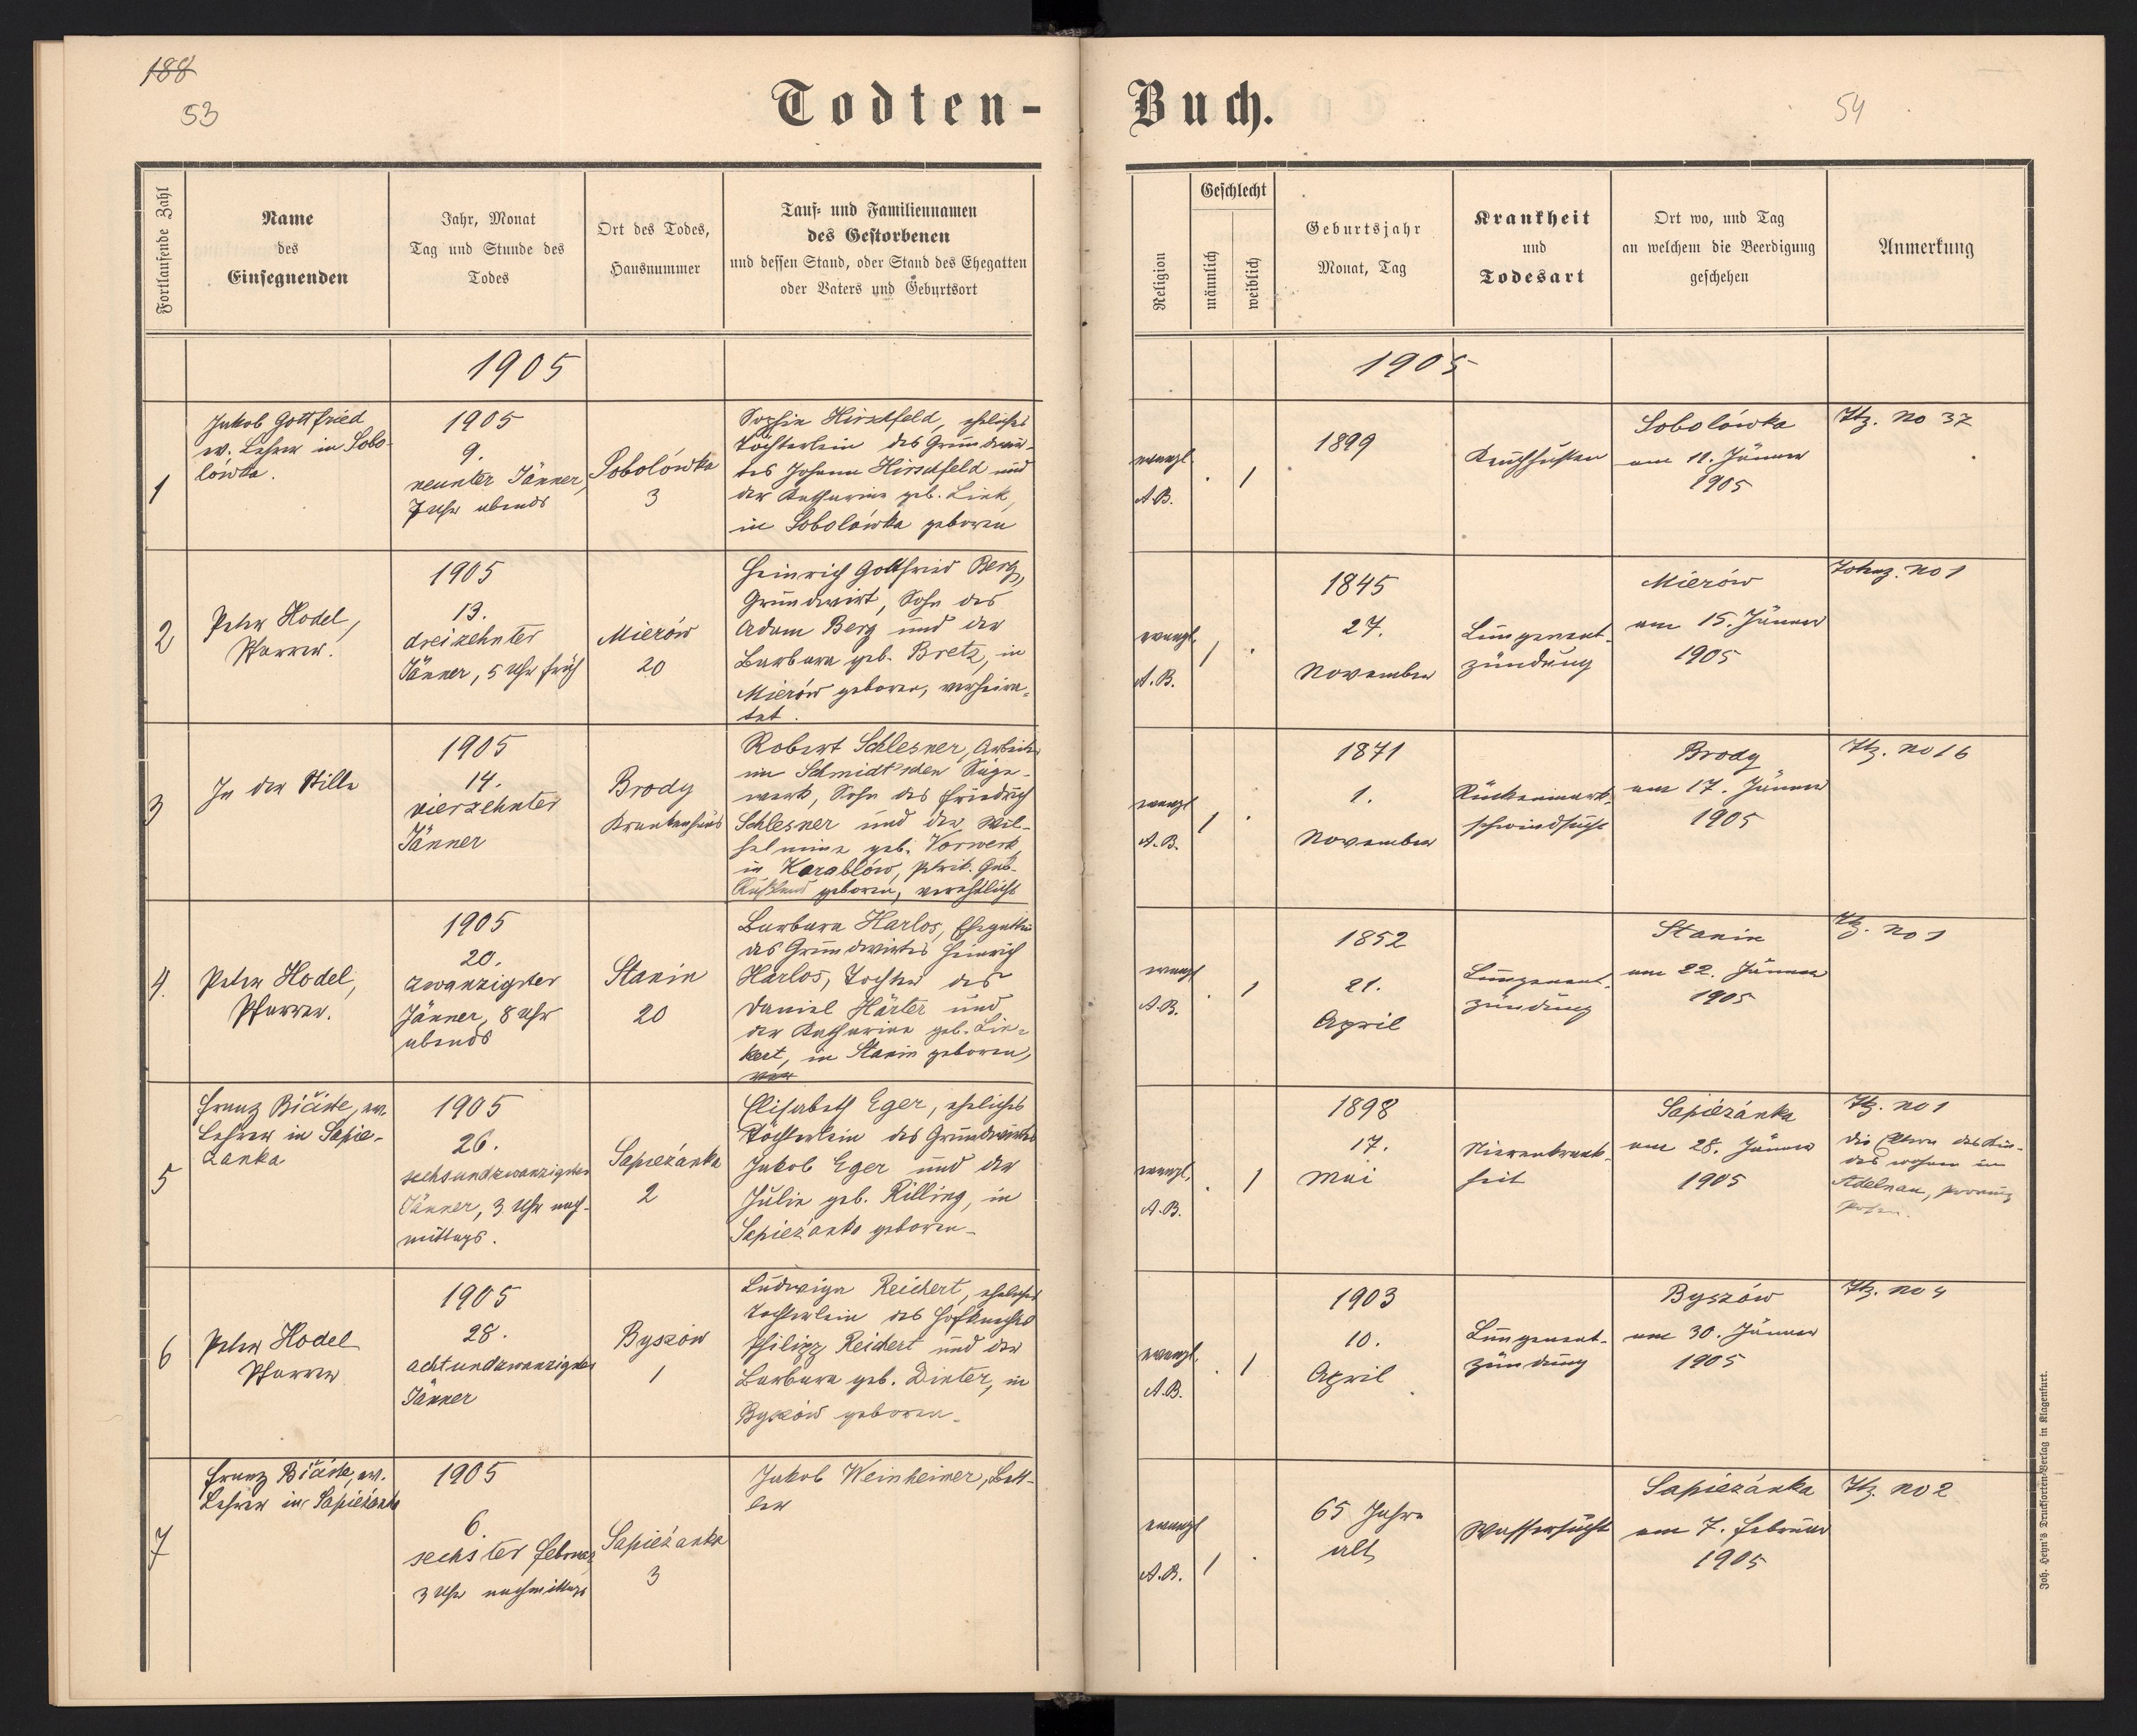 188
53
54
Todten-Buch.
Fortlaufende Zahl
Name
des
Einsegnenden
Jahr, Monat
Tag und Stunde des
Todes
Ort des Todes,
Hausnummer
Tauf- und Familiennamen
des Gestorbenen
und dessen Stand, oder Stand des Ehegatten
oder Vaters und Geburtsort
Religion
Geschlecht
männlich
weiblich
Geburtsjahr
Monat, Tag
Krankheit
und
Todesart
Ort wo, und Tag
an welchem die Beerdigung
geschehen
Anmerkung
1905
1905
1
Jakob Gottfried
ev. Lehrer in Sobo-
lówka.
1905
9.
neunter Jänner,
7 Uhr abends
Sobolówka
3
Sophie Hirschfeld, eheliches
Töchterlein des Grundwir-
tes Johann Hirschfeld und
der Katharina geb. Link,
in Sobolówka geboren
evangl.
A.B.
. 1
1899
Keuchhusten
Sobolówka
am 11. Jänner
1905
Ttz. No 37
2
Peter Hodel,
Pfarrer.
1905
13.
dreizehnter
Jänner, 5 Uhr früh
Mierów
20
Heinrich Gottfried Berg,
Grundwirt, Sohn des
Adam Berg und der
Barbara geb. Bretz, in
Mierów geboren, verheira-
tet.
evangl.
A.B.
1 .
1845
27.
November
Lungenent-
zündung
Mierów
am 15. Jänner
1905
No 1
3
In der Stille
1905
14.
vierzehnter
Jänner
Brody
Krankenhaus
Robert Schlesner, Arbeiter
im Schmidt'schen Säge-
werk, Sohn des Friedrich
Schlesner und der Wil-
helmine geb. Vorwerk,
in Karablów, Petrik. Gub.
Rußland geboren, verehelicht
evangl
A.B.
1 .
1871
1.
November
Rückenmark-
schwindsucht
Brody
am 17. Jänner
1905
Ttz. No 16
4.
Peter Hodel,
Pfarrer.
1905
20.
zwanzigster
Jänner, 8 Uhr
abends
Stanin
20
Barbara Harlos, Ehegattin
des Grundwirtes Heinrich
Harlos, Tochter des
Daniel Härter und
der Katharina geb. Lin-
kert, in Stanin geboren,
ver
evangl
A.B.
. 1
1852
21.
April
Lungenent-
zündung
Stanin
am 22. Jänner
1905
Ttz. No 1
5
Franz , ev.
Lehrer in Sapie-
zanka
1905
26.
sechsundzwanzigster
Jänner, 3 Uhr nach-
mittags.
Sapieżanka
2
Elisabeth Eger, eheliches
Töchterlein des Grundwirtes
Jakob Eger und der
Julie geb. Rilling, in
Sapieżanka geboren.
evangl.
A.B.
. 1
1898
17.
Mai
Nierenkrank-
heit
Sapieżanka
am 28. Jänner
1905
Ttz. No 1
die Eltern des Kin-
des wohnen in
Adelnau, Provinz
Posen.
6
Peter Hodel
Pfarrer
1905
28.
achtundzwanzigster
Jänner
Byszów
1
Ludwiga Reichert, eheliches
Töchterlein des Hofknechts
Philipp Reichert und der
Barbara geb. Dinter, in
Byszów geboren.
evangl.
A.B.
. 1
1903
10.
April
Lungenent-
zündung
Byszów
am 30. Jänner
1905
Ttz. No 4
7
Franz , ev.
Lehrer in Sapieżanka
1905
6.
sechster Februar,
3 Uhr nachmittags
Sapieżanka
3
Jakob Weinheimer, Bett-
ler
evangl
A.B.
1 .
65 Jahre
alt
Wassersucht
Sapieżanka
am 7. Februar
1905
Ttz. No 2
Joh. Heyn's Drucksorten-Verlag in Klagenfurt.